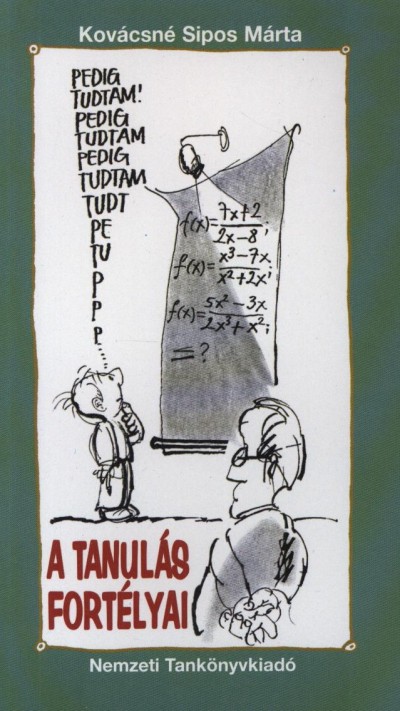 Kovácsné Sipos Márta
PEDIG
TUDTAM!
PEDIG
TUDTAM
PEDIG
TUDTAM
TUDT
PE
TU
P
P
P
f(x)=7x+2/2x-8;
f(x)=x³-7x/x²+2x;
f(x)=5x²-3x/2x³+x²;
≤?
A TANULÁS
FORTÉLYAI
Nemzeti Tankönyvkiadó